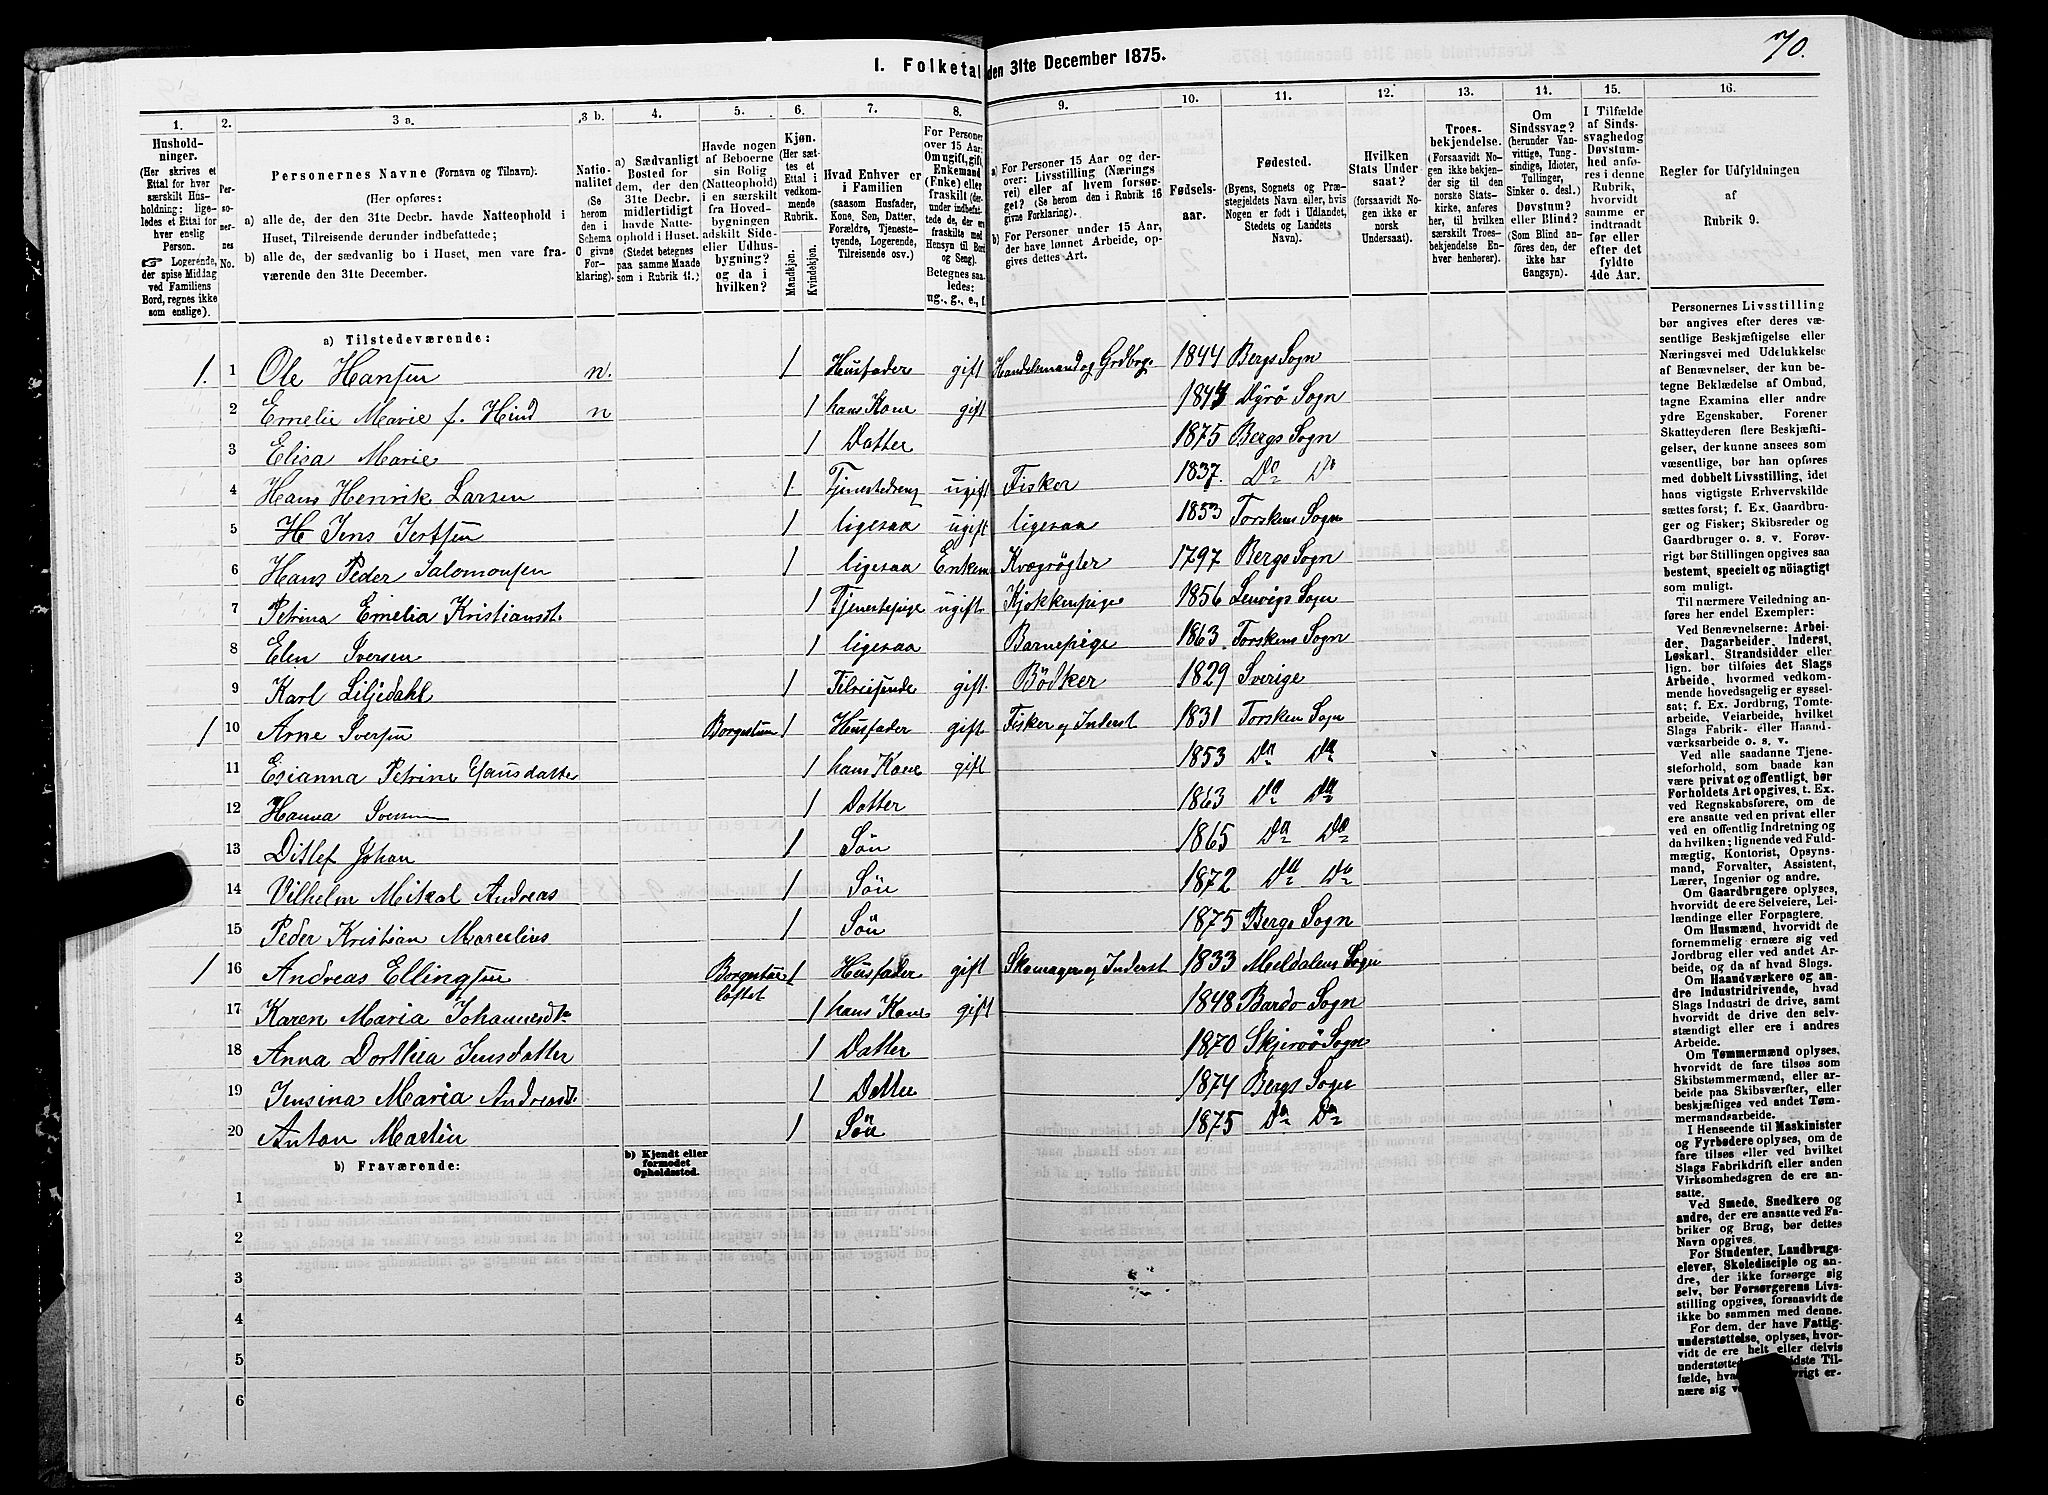 70.
I. Folketal den 31te December 1875.
1. 2. 3 a. 3 b. 4. 5. 6. 7. 8. 9. 10. 11. 12. 13. 14. 15. 16.
Hushold-
ninger.
(Her skrives et
Ettal for hver
særskilt Hus-
holdning; lige-
ledes et Ettal for
hver enslig
Person.
☞ Logerende,
der spise Middag
ved Familiens
Bord, regnes ikke
som enslige).
Per-
so-
ner-
nes
No.
Personernes Navne (Fornavn og Tilnavn).
(Her opføres:
a) alle de, der den 31te Decbr. havde Natteophold i
Huset, Tilreisende derunder indbefattede;
b) alle de, der sædvanlig bo i Huset, men vare fra-
værende den 31te December.
Natio-
nalitet
(Se
herom
den i
Schema
O givne
For-
klaring).
a) Sædvanligt
Bosted for
dem, der den
31te Decbr.
midlertidigt
havde Natte-
ophold i Huset.
(Stedet betegnes
paa samme Maade
som i Rubrik 11.)
Havde nogen
af Beboerne
sin Bolig
(Natteophold)
i en særskilt
fra Hoved-
bygningen
adskilt Side-
eller Udhus-
bygning?
og da i
hvilken?
Kjøn.
(Her sæt-
tes et
Ettal i
vedkom-
mende
Rubrik.
Mandkjøn.
Kvindekjøn.
Hvad Enhver er
i Familien
(saasom Husfader,
Kone, Søn, Datter,
Forældre, Tjeneste-
tyende, Logerende,
Tilreisende osv.)
For Personer
over 15 Aar:
Om ugift, gift,
Enkemand
(Enke) eller
fraskilt (der-
under indbefat-
tede de, der ere
fraskilte med
Hensyn til Bord
og Seng).
Betegnes saa-
ledes:
ug., g., e., f.
a) For Personer 15 Aar og der-
over: Livsstilling (Nærings
vei) eller af hvem forsør-
get? (Se herom den i Rubrik 16
givne Forklaring).
b) For Personer under 15 Aar,
der have lønnet Arbeide, op-
gives dettes Art.
Fødsels-
aar.
Fødested.
(Byens, Sognets og Præ-
stegjeldets Navn eller, hvis
Nogen er født i Udlandet,
Stedets og Landets
Navn).
Hvilken
Stats Under-
saat?
(forsaavidt No-
gen ikke er
norsk
Undersaat).
Troes-
bekjendelse.
(Forsaavidt No-
gen ikke bekjen-
der sig til den
norske Stats-
kirke, anføres
her, til hvilken
særskilt Troes-
bekjendelse En-
hver henhører).
Om
Sindssvag?
(herunder Van-
vittige, Tung-
sindige, Idioter,
Tullinger,
Sinker o. desl.)
Døvstum?
eller Blind?
(Som Blind an-
føres den, der
ikke har
Gangsyn).
I Tilfælde
af Sinds-
svaghed og
Døvstum-
hed anfø-
res i denne
Rubrik,
hvorvidt
samme er
indtraadt
før eller
efter det
fyldte
4de Aar.
Regler for Udfyldningen
af
Rubrik 9.
a) Tilstedeværende:
1. 1 Ole Hansen n. 1 Husfader gift Handelsmand og Grdbrg. 1844 Bergs Sogn
2 Emelie Marie f. Hind n 1 hans Kone gift Dyrö Sogn
3 Elisa Marie 1 Datter 1875 Bergs Sogn
4 Hans Henrik Larsen 1 Tjenestedreng ugift Fisker 1837. Do Do
5 H Jens Jertsen 1 ligesaa ugift ligesaa 1853 Torskens Sogn
6 Hans Peder Salomonsen 1 ligesaa Enkem Kvægrögter 1797 Bergs Sogn
7 Petrina Emelia Kristiansdt. 1 Tjenestepige ugift. Kjøkkenpige 1856 Lenvigs Sogn
8 Elen Iversen 1 ligesaa Barnepige 1863. Torskens Sogn
9 Karl Liljedahl 1 Tilreisende gift. Bödker 1829 Sverige
1 10 Arne Iversen Borgestuen 1 Husfader gift Fisker og Inderst 1831 Torsken Sogn
11 Esianna Petrine Hansdatter 1 hans Kone gift 1853 Do Do
12 Hanna Iversen 1 Datter 1863 Do Do
13 Ditlef Johan 1 Sön 1865 Do Do
14 Vilhelm Mikal Andreas 1 Sön 1872 Do Do
15 Peder Kristian Marcelius 1 Sön 1875 Bergs Sogn
1 16 Andreas Ellingsen Borgestue 1 Husfader gift Skomager og Inderst 1833 Meldalens Sogn
loftet
17 Karen Maria Johannesdtr 1 hans Kone gift 1848 Bardo Sogn
18 Anna Dorthea Jensdatter 1 Datter 1870 Skjervö Sogn
19 Jensina Maria Andreasdt. 1 Datter 1874 Bergs Sogn
20 Anton Martin 1 Sön 1875 Do Do
b) Fraværende:
b) Kjendt eller
formodet
Opholdssted.
1
2
3
4
5
6
Personernes Livsstilling
bør angives efter deres væ-
sentlige Beskjæftigelse eller
Næringsvei med Udelukkelse
af Benævnelser, der kun be-
tegne Beklædelse af Ombud,
tagne Examina eller andre
ydre Egenskaber. Forener
Skatteyderen flere Beskjæfti-
gelser, der kunne ansees som
væsentlige, bør han opføres
med dobbelt Livsstilling, idet
hans vigtigste Erhvervskilde
sættes først; f. Ex. Gaardbru-
ger og Fisker; Skibsreder og
Gaardbruger o. s. v. Forøv-
rigt bør Stillingen opgives saa
bestemt, specielt og nöiagtigt
som muligt.
Til nærmere Veiledning an-
føres her endel Exempler:
Ved Benævnelserne: Arbei-
der, Dagarbeider, Inderst,
Løskarl, Strandsidder eller
lign. bør tilføies det Slags
Arbeide, hvormed vedkom-
mende hovedsagelig er syssel-
sat; f. Ex. Jordbrug, Tomte-
arbeide, Veiarbeide, hvilket
Slags Fabrik- eller Haand-
værksarbeide o. s. v.
Ved alle saadanne Tjene-
steforhold, som baade kan
være privat og offentligt, bør
Forholdets Art opgives, t. Ex.
ved Regnskabsførere, om de
ere ansatte ved en privat eller
ved en offentlig Indretning og
da hvilken; lignende ved Fuld-
mægtig, Kontorist, Opsyns-
mand, Forvalter, Assistent,
Lærer, Ingeniør og andre.
Om Gaardbrugere oplyses,
hvorvidt de ere Selveiere, Lei-
lændinge eller Forpagtere.
Om Husmænd, hvorvidt de
fornemmelig ernære sig ved
Jordbrug eller ved andet Ar-
beide, og da af hvad Slags.
Om Haandværkere og an-
dre Industridrivende, hvad
Slags Industri de drive, samt
hvorvidt de drive den selv-
stændigt eller ere i andres
Arbeide.
Om Tømmermænd oplyses,
hvorvidt de fare tilsøs som
Skibstømmermænd, eller ar-
beide paa Skibsværfter, eller
beskjæftiges ved andet Tøm-
mermandsarbeide.
I Henseende til Maskinister
og Fyrbødere oplyses, om de
fare tilsøs eller ved hvilket
Slags Fabrikdrift eller anden
Virksomhedsgren de ere an-
satte.
Ved Smede, Snedkere og
andre, der ere ansatte ved Fa-
briker og Brug, bør dettes
Navn opgives.
For Studenter, Landbrugs-
elever, Skoledisciple og an-
dre, der ikke forsørge sig
selv, bør Forsørgerens Livs-
stilling opgives, forsaavidt de
ikke bo sammen med denne.
For dem, der have Fattig-
understøttelse, oplyses, hvor-
vidt de ere helt eller delvis
understøttede
fælde,
nære sig